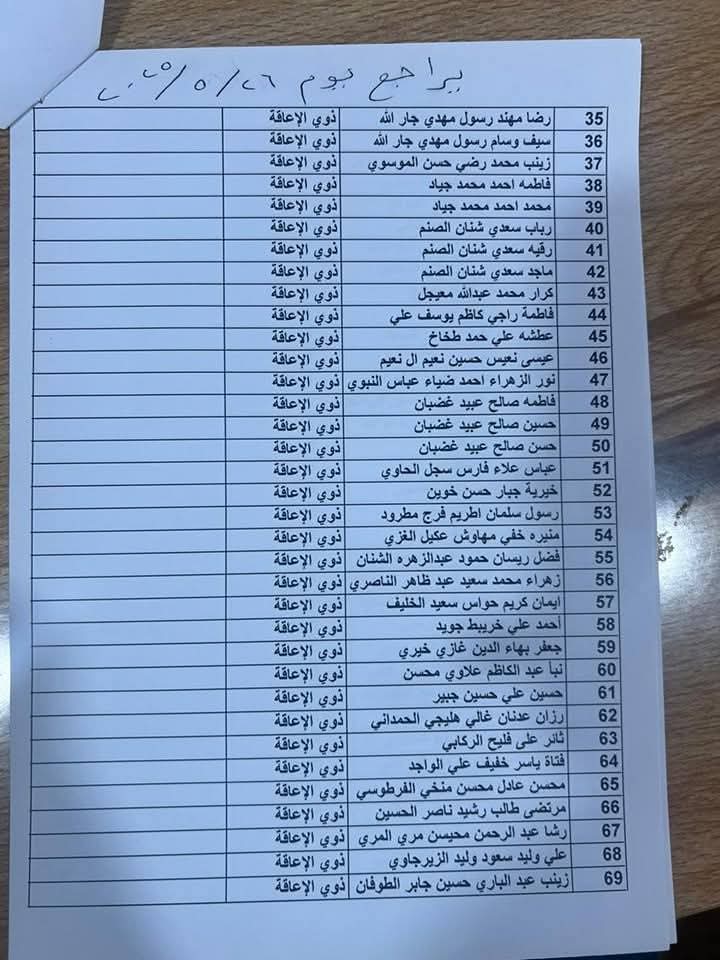 يراجع يوم ٢٠٢٥/٥/٢٦
35 رضا مهند رسول مهدي جار الله ذوي الإعاقة
36 سيف وسام رسول مهدي جار الله ذوي الإعاقة
37 زينب محمد رضي حسن الموسوي ذوي الإعاقة
38 فاطمه احمد محمد جياد ذوي الإعاقة
39 محمد احمد محمد جياد ذوي الإعاقة
40 رباب سعدي شنان الصنم ذوي الإعاقة
41 رقيه سعدي شنان الصنم ذوي الإعاقة
42 ماجد سعدي شنان الصنم ذوي الإعاقة
43 كرار محمد عبدالله معيجل ذوي الإعاقة
44 فاطمة راجي كاظم يوسف علي ذوي الإعاقة
45 عطشه علي حمد طخاخ ذوي الإعاقة
46 عيسى نعيس حسين نعيم ال نعيم ذوي الإعاقة
47 نور الزهراء احمد ضياء عباس النبوي ذوي الإعاقة
48 فاطمه صالح عبيد غضبان ذوي الإعاقة
49 حسين صالح عبيد غضبان ذوي الإعاقة
50 حسن صالح عبيد غضبان ذوي الإعاقة
51 عباس علاء فارس سجل الحاوي ذوي الإعاقة
52 خيرية جبار حسن خوين ذوي الإعاقة
53 رسول سلمان اطريم فرج مطرود ذوي الإعاقة
54 منيره خفي مهاوش عكيل الغزي ذوي الإعاقة
55 فضل ريسان حمود عبدالزهره الشنان ذوي الإعاقة
56 زهراء محمد سعيد عبد ظاهر الناصري ذوي الإعاقة
57 ايمان كريم حواس سعيد الخليف ذوي الإعاقة
58 أحمد علي خريبط جويد ذوي الإعاقة
59 جعفر بهاء الدين غازي خيري ذوي الإعاقة
60 نبأ عبد الكاظم علاوي محسن ذوي الإعاقة
61 حسين علي حسين جبير ذوي الإعاقة
62 رزان عدنان غالي هليجي الحمداني ذوي الإعاقة
63 ثائر على فليح الركابي ذوي الإعاقة
64 فتاة ياسر خفيف علي الواجد ذوي الإعاقة
65 محسن عادل محسن منخي الفرطوسي ذوي الإعاقة
66 مرتضى طالب رشيد ناصر الحسين ذوي الإعاقة
67 رشا عبد الرحمن محيسن مري المري ذوي الإعاقة
68 علي وليد سعود وليد الزيرجاوي ذوي الإعاقة
69 زينب عبد الباري حسين جابر الطوفان ذوي الإعاقة